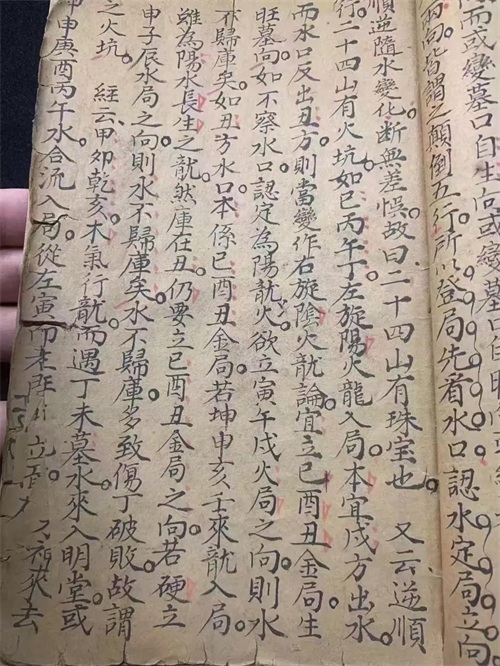 而或變墓口自生向或變墓
兩向皆謂之顛倒五行所以登局先看水口認水定局立向
順逆隨水變化。斷無差悞。故曰二十四山有珠宝也。 又云逆順
行。二十四山有火坑。如巳丙午丁左旋陽火龍入局。本宜戍方出水。
而水口反出丑方。則當變作右旋陰火龍論。宜立巳酉丑金局生
旺墓向。如不察水口。認定為陽龍火。欲立寅午戍火局之向。則水
不歸庫矣。如丑方水口。本係巳酉丑金局。若坤申亥壬來龍入局。
雖為陽水長生之龍。然庫在丑。仍要立巳酉丑金局之向。若硬立
申子辰水局之向。則水不歸庫矣。水不歸庫。多致傷丁破敗。故謂
之火坑。 經云甲卯乾亥木氣行龍。而遇丁未墓水來入明堂。或
申庚酉丙午水合流入局。從左寅而